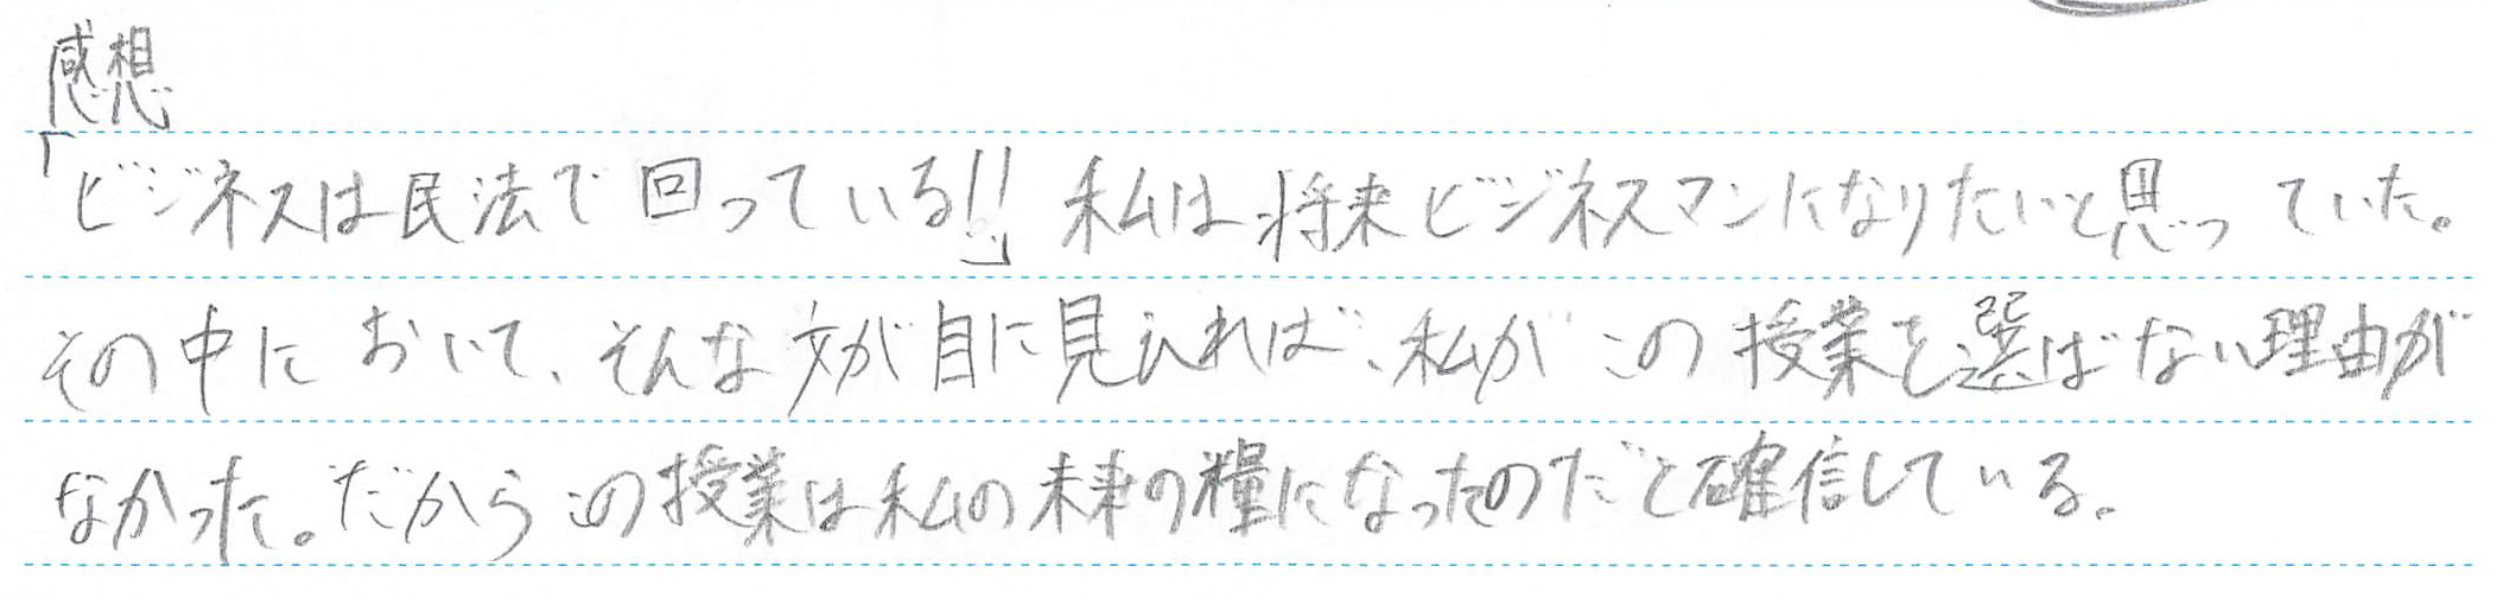 感想
「ビジネスは民法で回っている!!」私は将来ビジネスマンになりたいと思っていた。
その中において、そんな文が目に見えれば、私がこの授業を選ばない理由が
なかった。だからこの授業は私の未来の糧になったのだと確信している。